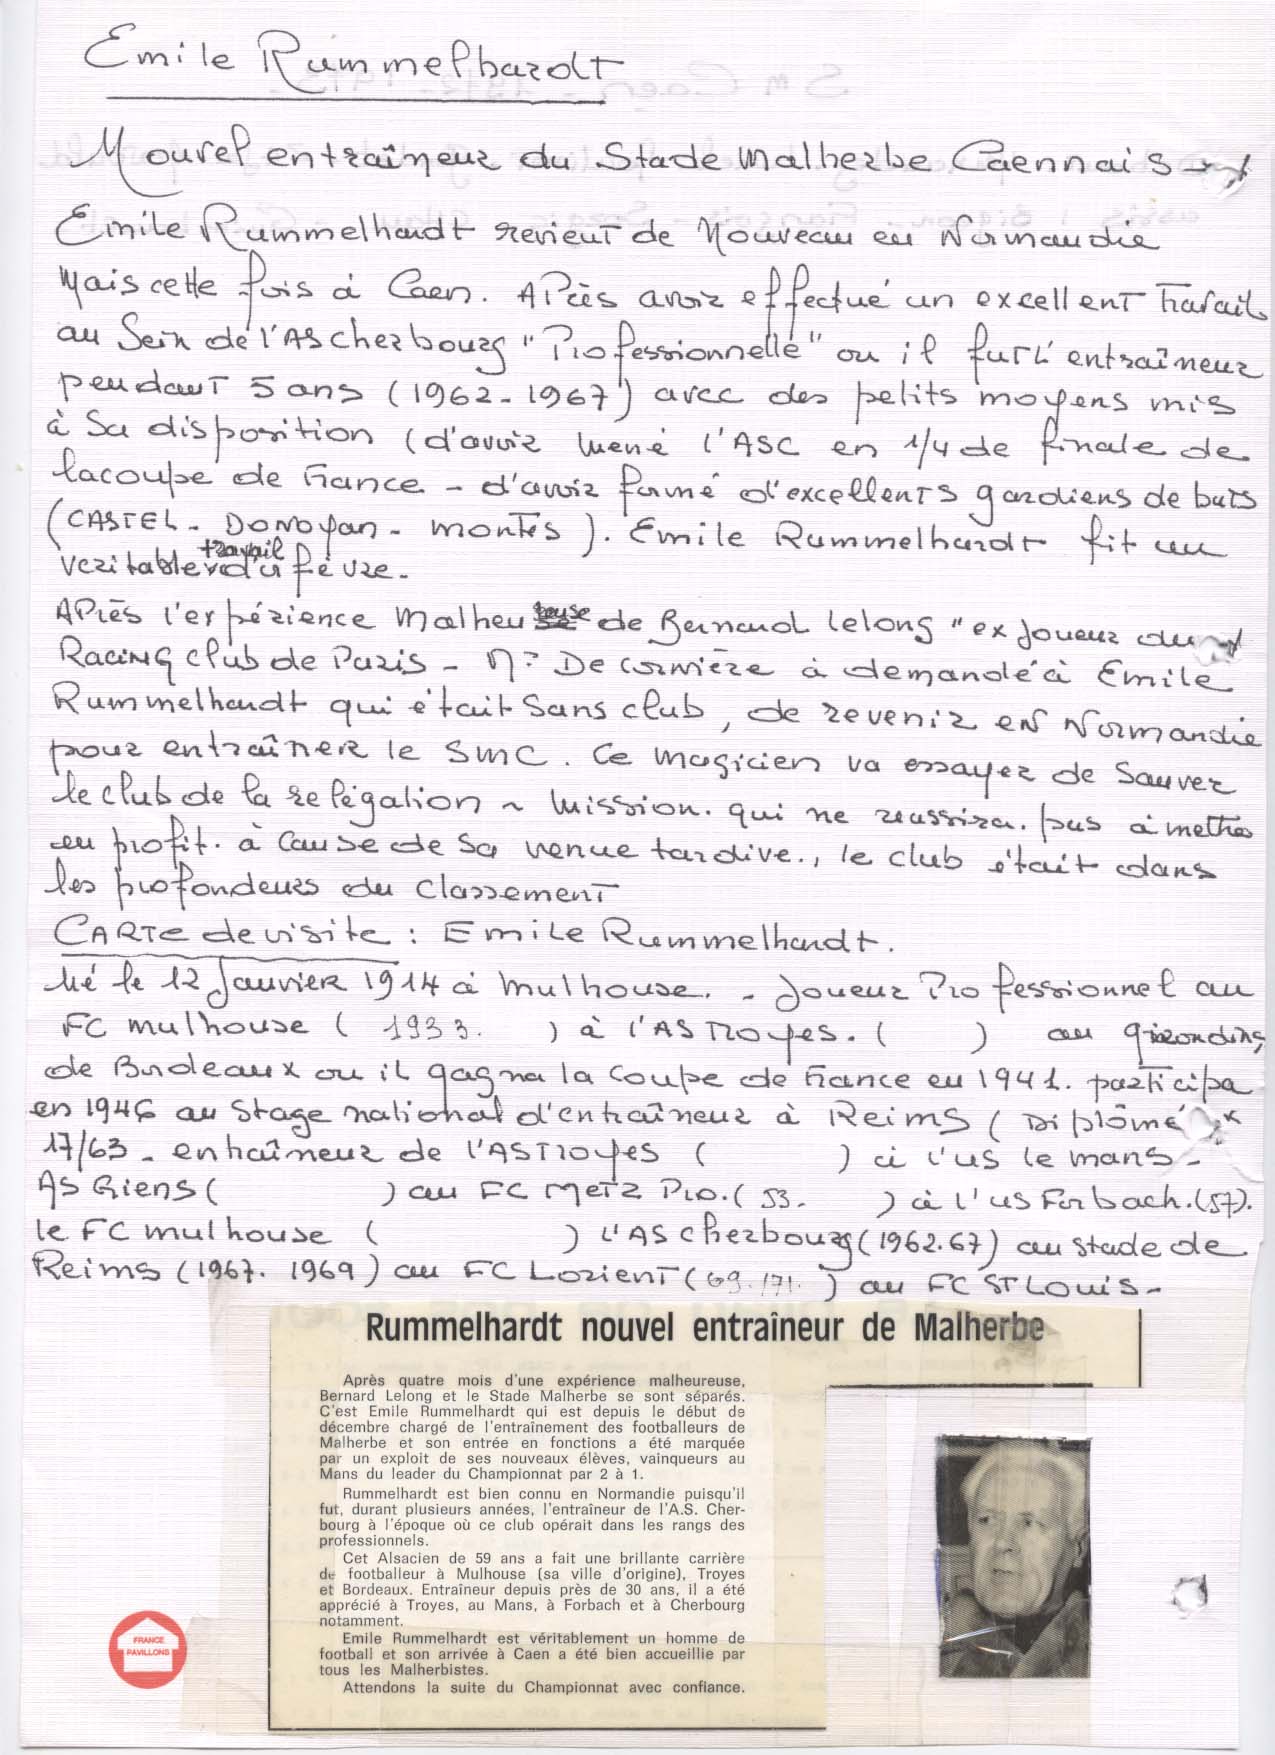 Emile Rummelhardt
Nouvel entraîneur du Stade Malherbe Caennais -
Emile Rummelhardt revient de Nouveau en Normandie
Mais cette fois à Caen. Après avoir effectué un excellent Travail
au Sein de l'AS cherbourg "Professionnelle" ou il fut l'entraîneur
pendant 5 ans (1962-1967) avec des petits moyens mis
à Sa disposition (d'avoir mené l'ASC en 1/4 de finale de
la coupe de France - d'avoir formé d'excellents gardiens de buts
(CASTEL - DONOyan - montès ). Emile Rummelhardt fit un
veritable travail d'orfèvre.
Après l'expérience Malheureuse de Bernard Lelong "ex Joueur du
Racing club de Paris - Mr De cornière à demandé à Emile
Rummelhardt qui était Sans club, de revenir en Normandie
pour entraîner le SMC. Ce magicien va essayer de Sauver
le club de la relégation ~ mission. qui ne reussira. pas à mettre
en profit. à Cause de Sa venue tardive., le club était dans
les profondeurs du Classement
CARTE de visite : Emile Rummelhardt.
Né le 12 Janvier 1914 à Mulhouse. - Joueur Professionnel au
FC mulhouse ( 1933. ) à l'AS Troyes. ( ) au girondins
de Bordeaux ou il gagna la Coupe de France en 1941. participa
en 1946 au Stage national d'entraîneur à Reims ( Diplômé
17/63 - entraîneur de l'AS Troyes ( ) à l'us le mans -
AS Giens ( ) au FC Metz Pro. ( 53. ) à l'us Forbach. (57).
le FC mulhouse ( ) l'AS cherbourg (1962.67) au stade de
Reims (1967. 1969) au FC Lorient (69.171. ) au FC ST Louis -
Rummelhardt nouvel entraîneur de Malherbe
Après quatre mois d'une expérience malheureuse,
Bernard Lelong et le Stade Malherbe se sont séparés.
C'est Emile Rummelhardt qui est depuis le début de
décembre chargé de l'entraînement des footballeurs de
Malherbe et son entrée en fonctions a été marquée
par un exploit de ses nouveaux élèves, vainqueurs au
Mans du leader du Championnat par 2 à 1.
Rummelhardt est bien connu en Normandie puisqu'il
fut, durant plusieurs années, l'entraîneur de l'A.S. Cher-
bourg à l'époque où ce club opérait dans les rangs des
professionnels.
Cet Alsacien de 59 ans a fait une brillante carrière
de footballeur à Mulhouse (sa ville d'origine), Troyes
et Bordeaux. Entraîneur depuis près de 30 ans, il a été
apprécié à Troyes, au Mans, à Forbach et à Cherbourg
notamment.
Emile Rummelhardt est véritablement un homme de
football et son arrivée à Caen a été bien accueillie par
tous les Malherbistes.
Attendons la suite du Championnat avec confiance.
FRANCE
PAVILLONS